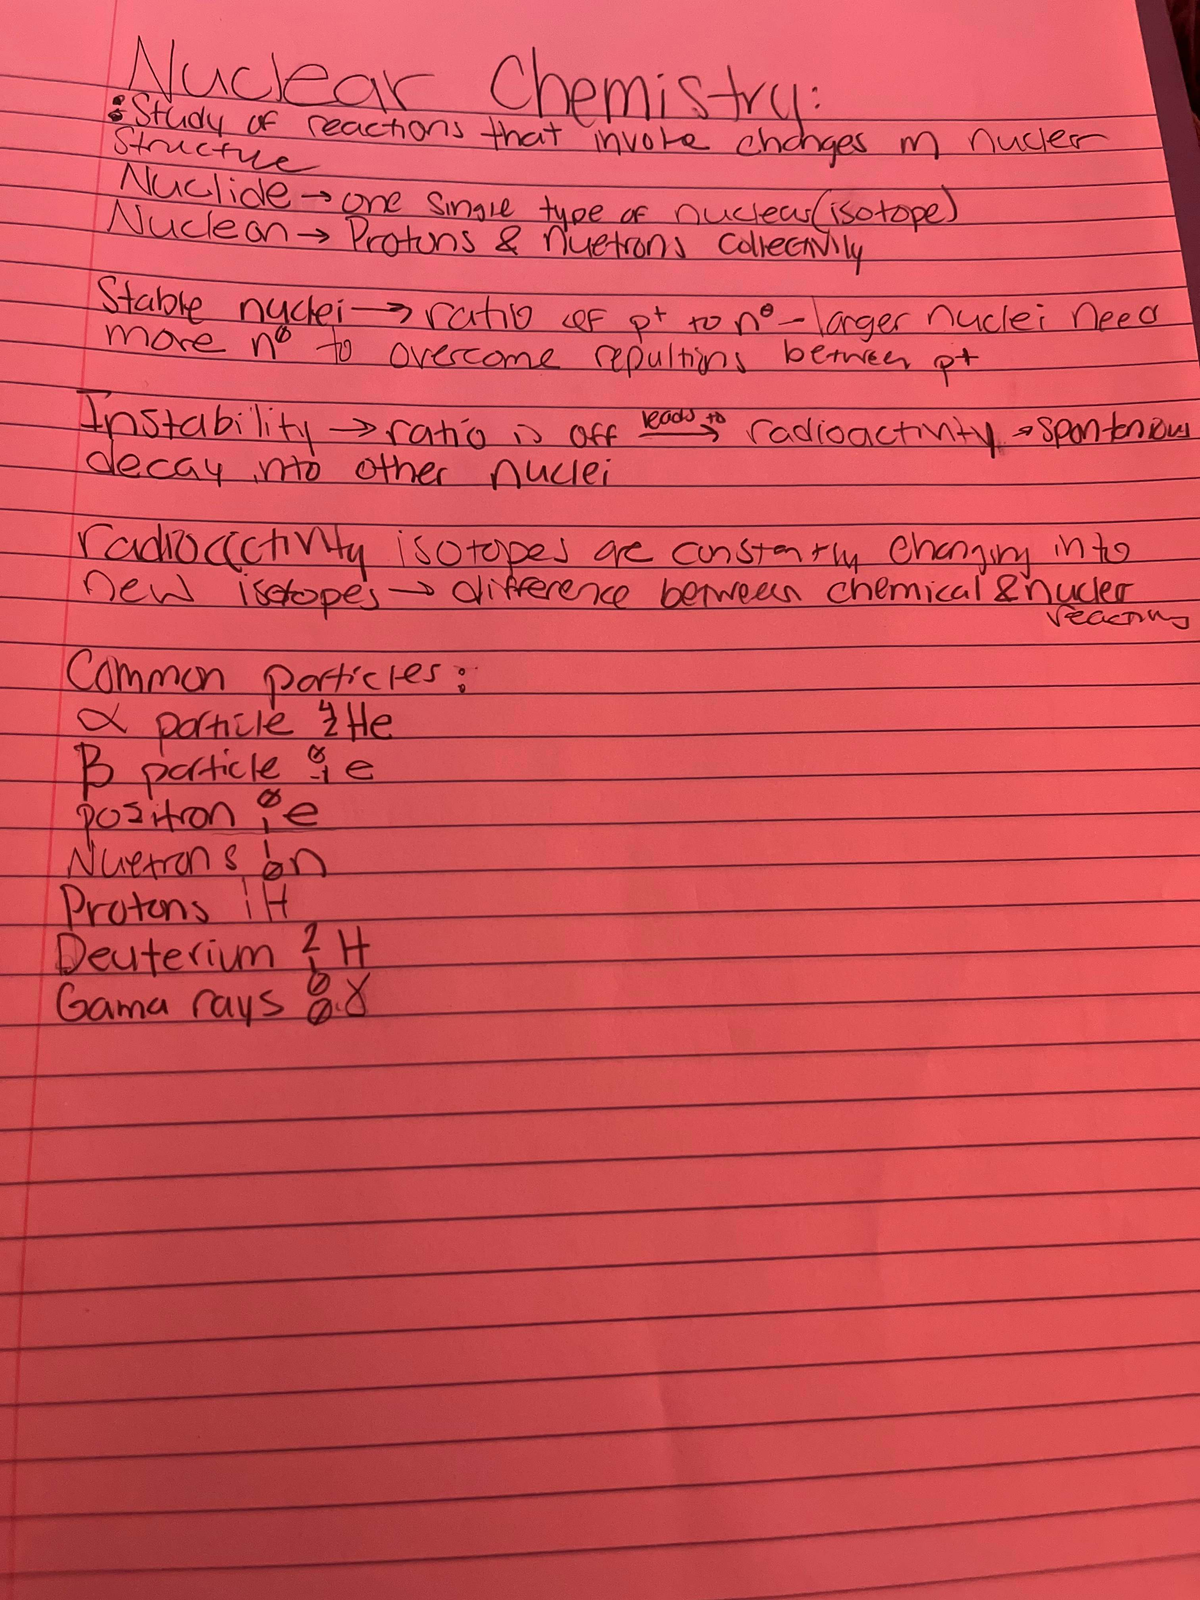 Nuclear Chemistry:
: Study of reactions that invoke changes in nucler
Structue
Nuclide → one single type of nucleus (isotope)
Nucleon → Protons & nuetrons collectivily
Stable nuclei → ratio of p⁺ to n⁰ - larger nuclei need
more n⁰ to overcome repultions between p⁺
Instability → ratio is off leads to → radioactivity → spontenious
decay into other nuclei
radioactivity isotopes are constantly changing into
new isotopes → difference between chemical & nucler
reactions
Common particles:
α particle ⁴₂He
β particle ⁰₋₁e
positron ⁰₁e
Nuetrons ¹₀n
Protons ¹₁H
Deuterium ²₁H
Gama rays ⁰₀γ